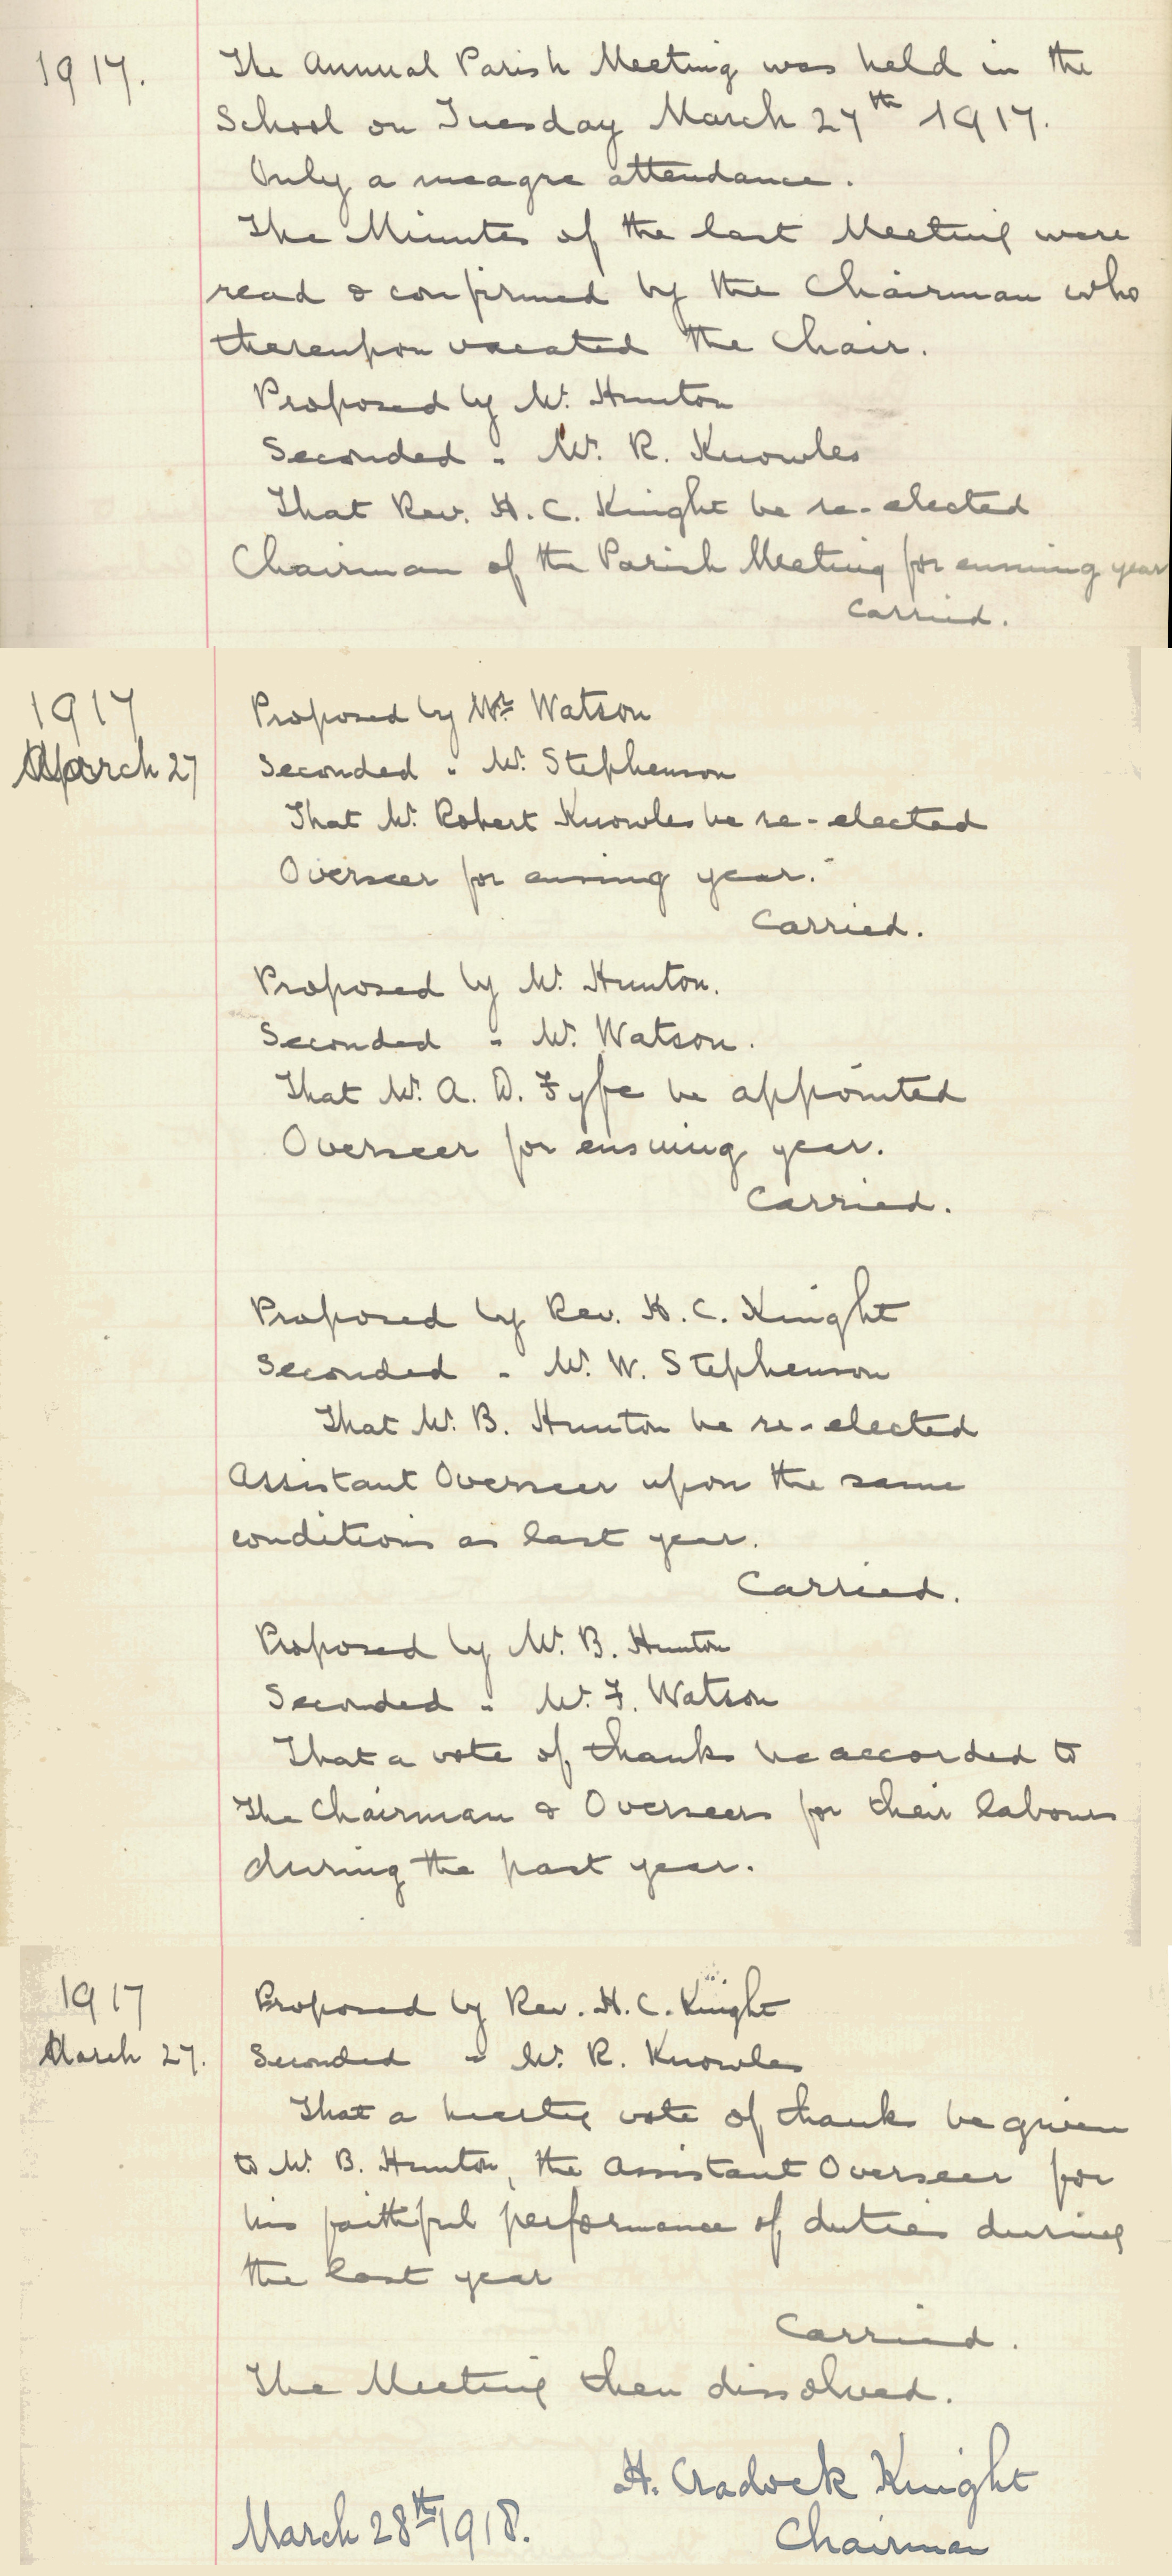 1917.
The Annual Parish Meeting was held in the
School on Tuesday March 27th 1917.
Only a meagre attendance.
The Minutes of the last Meeting were
read & confirmed by the Chairman who
thereupon vacated the Chair.
Proposed by Mr. Hunton
Seconded " Mr. R. Knowles
That Rev. H. C. Knight be re-elected
Chairman of the Parish Meeting for ensuing year
Carried.
1917
March 27
Proposed by Mr. Watson
Seconded " Mr. Stephenson
That Mr. Robert Knowles be re-elected
Overseer for ensuing year.
Carried.
Proposed by Mr. Hunton.
Seconded " Mr. Watson.
That Mr. A. D. Fyfe be appointed
Overseer for ensuing year.
Carried.
Proposed by Rev. H. C. Knight
Seconded " Mr. W. Stephenson
That Mr. B. Hunton be re-elected
Assistant Overseer upon the same
conditions as last year.
Carried.
Proposed by Mr. B. Hunton
Seconded " Mr. F. Watson
That a vote of thanks be accorded to
The Chairman & Overseers for their labours
during the past year.
1917
March 27.
Proposed by Rev. H. C. Knight
Seconded " Mr. R. Knowles
That a hearty vote of thanks be given
to Mr. B. Hunton, the Assistant Overseer for
his faithful performance of duties during
the last year
Carried.
The Meeting then dissolved.
H. Cradock Knight
March 28th 1918.
Chairman